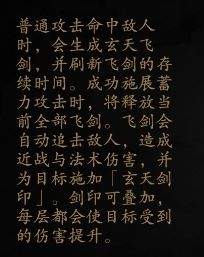 普通攻击命中敌人
时，会生成玄天飞
剑，并刷新飞剑的存
续时间。成功施展蓄
力攻击时，将释放当
前全部飞剑。飞剑会
自动追击敌人，造成
近战与法术伤害，并
为目标施加「玄天剑
印」。剑印可叠加，
每层都会使目标受到
的伤害提升。